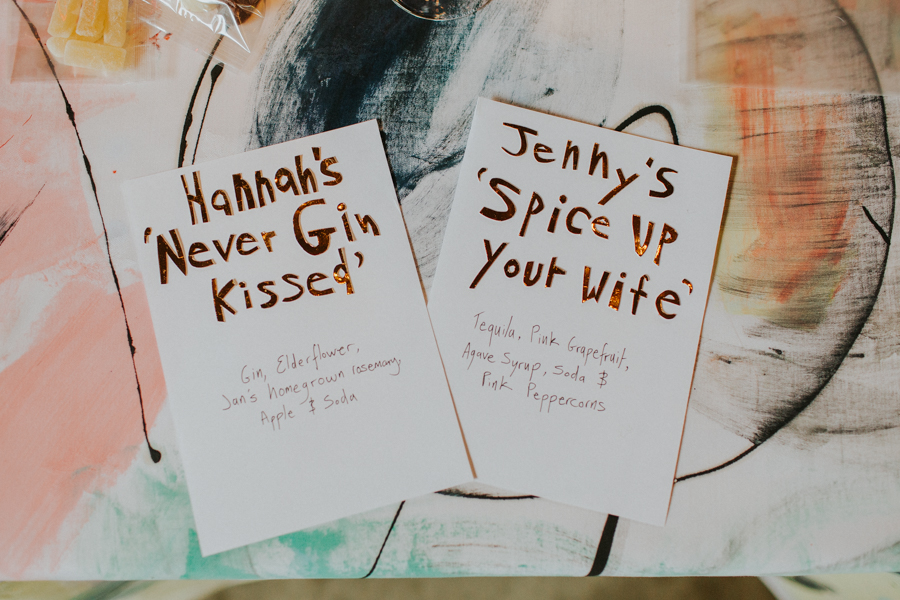 Hannah's
'Never Gin
Kissed'
Gin, Elderflower,
Jan's homegrown rosemary,
Apple & Soda
Jenny's
'Spice Up
Your Wife'
Tequila, Pink Grapefruit,
Agave Syrup, Soda &
Pink Peppercorns